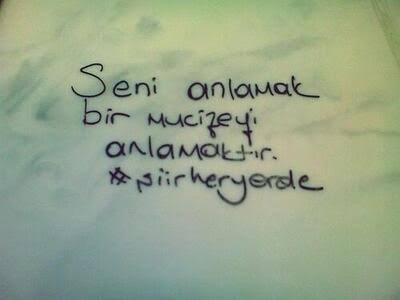 Seni anlamak
bir mucizeyi
anlamaktır.
#şiirheryerde